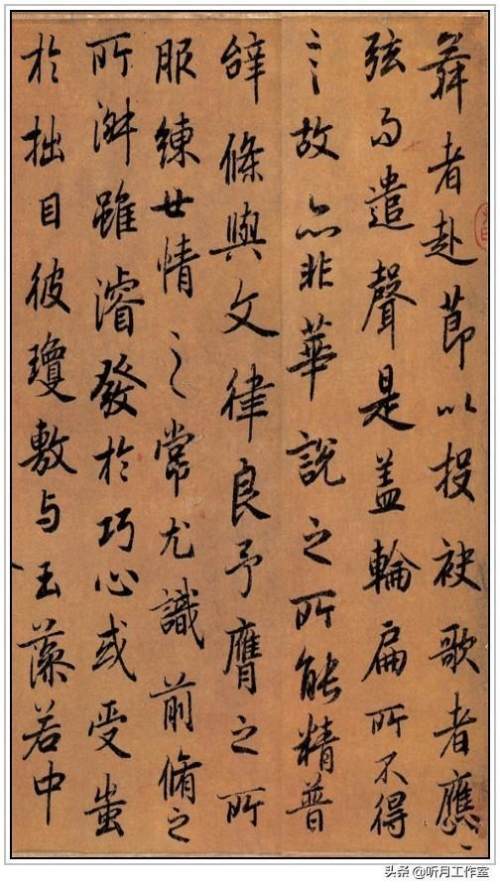 舞者赴節以投袂歌者應
弦而遣聲是盖輪扁所不得
言故亦非華說之所能精普
辭條與文律良予膺之所
服練世情之常尤識前脩之
所淑雖濬發於巧心或受蚩
於拙目彼瓊敷与玉藻若中
头条 @听月工作室